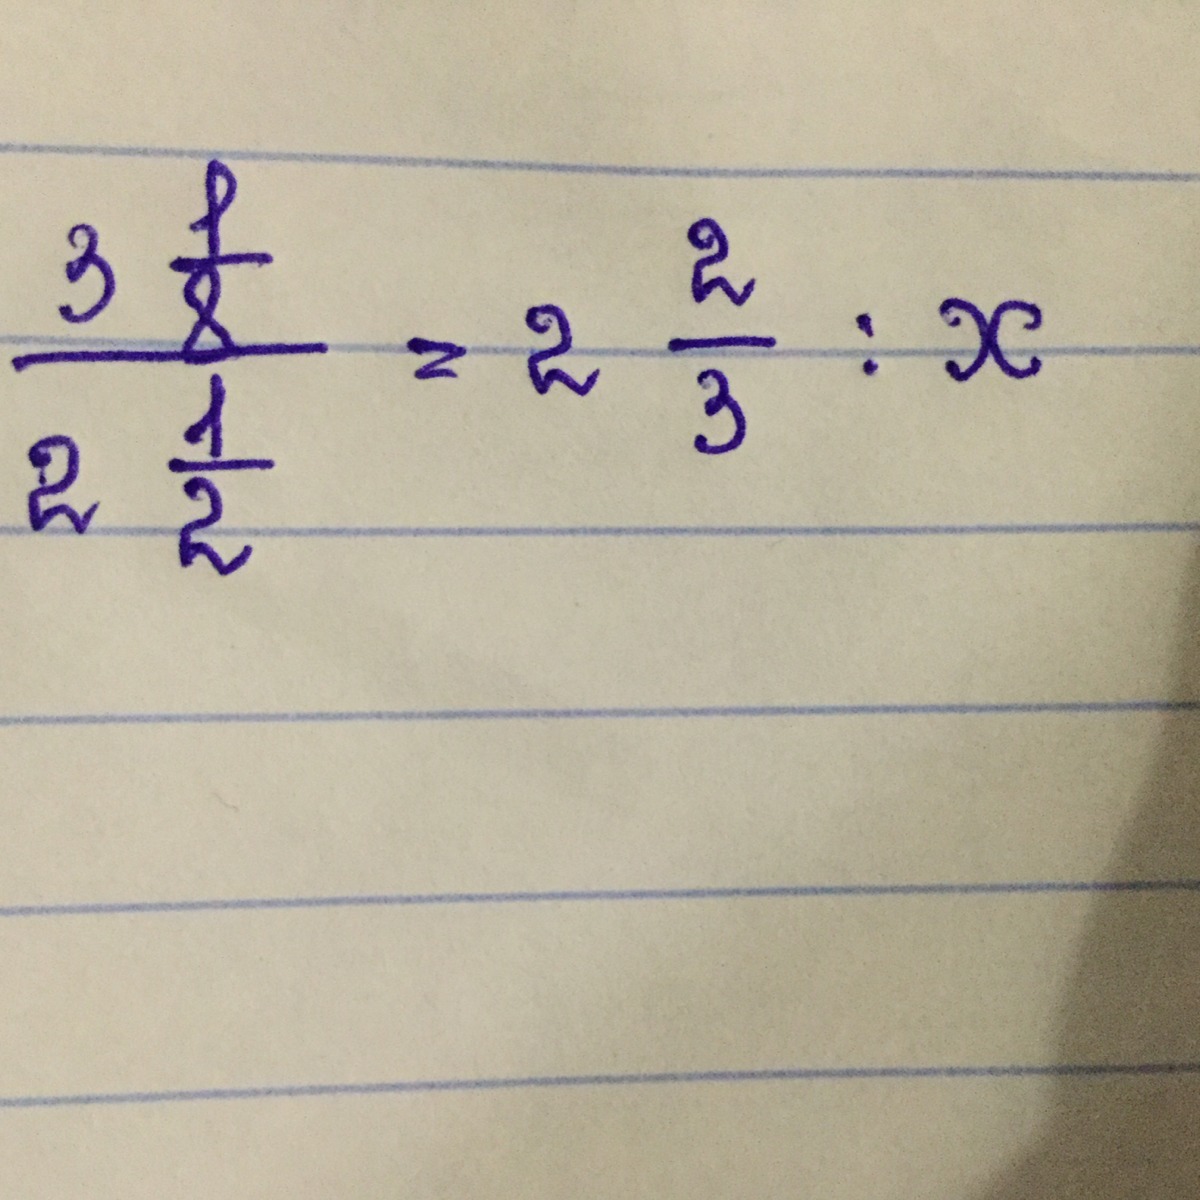 3 1/8 / 2 1/2 = 2 2/3 : x